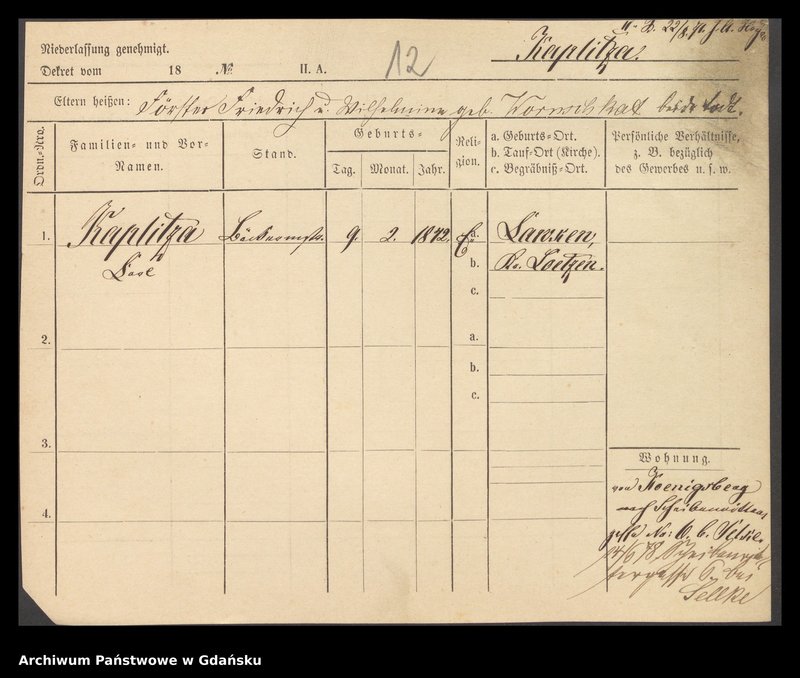 Niederlassung genehmigt.
Dekret vom 18 № II. A.
12
Kaplitza.
Eltern heißen: Förster Friedrich u. Wilhelmine geb. beide todt.
Ordn.-Nro.
Familien- und Vor-
Namen.
Stand.
Geburts-
Tag. Monat. Jahr.
Reli-
gion.
a. Geburts-Ort.
b. Tauf-Ort (Kirche).
c. Begräbniß-Ort.
Persönliche Verhältnisse,
z. B. bezüglich
des Gewerbes u. s. w.
1. Kaplitza Bäckermstr. 9. 2. 1842. a.
Carl
b. Kr. Loetzen.
c.
2. a.
b.
c.
3.
4.
Wohnung.
von Koenigsberg
nach
No: 6. b.
6, bei
Sellke
Archiwum Państwowe w Gdańsku